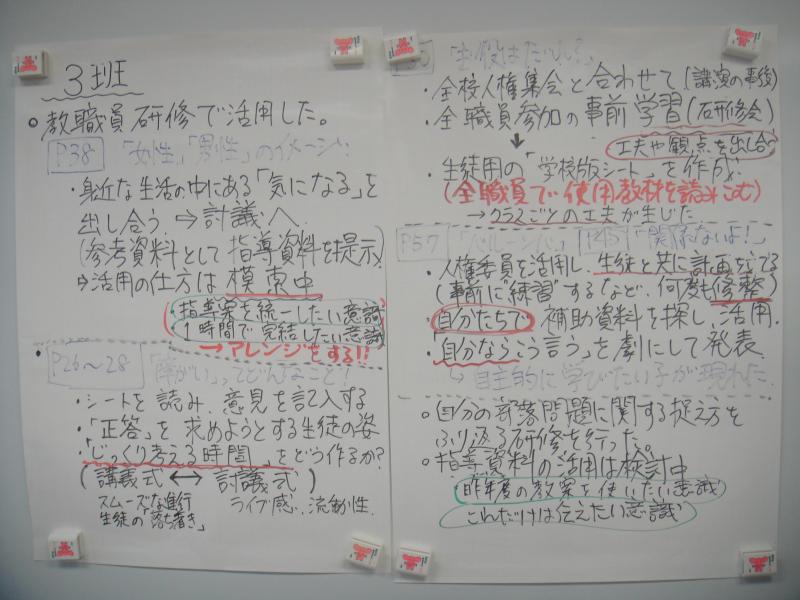 3班
○教職員研修で活用した。
P38 「女性」「男性」のイメージ
・身近な生活の中にある「気になる」を
出し合う ⇨ 討議へ
(参考資料として指導資料を提示)
⇨活用の仕方は模索中
・指導案を統一したい意識
・1時間で完結したい意識
→アレンジをする!!
P26〜28 「障がい」ってどんなこと?
・シートを読み、意見を記入する
・「正答」を求めようとする生徒の姿
・「じっくり考える時間」をどう作るか?
(講義式 ↔ 討議式)
スムーズな進行 ライブ感、流動性
生徒の「落ち着き」
「主役はだれ?」
・全校人権集会と合わせて(講演の事後)
・全職員参加の事前学習(研修会)
工夫や観点を出し合う
↓
・生徒用の「学校版シート」を作成
(全職員で使用教材を読みこむ)
→クラスごとの工夫が生じた
P57 「バルーンバ」 P45 「関係ないよ!」
・人権委員を活用し、生徒と共に計画を立てる
(事前に"練習"するなど、何度も修整)
・自分たちで補助資料を探し、活用.
・「自分ならこう言う」を劇にして発表
↳自主的に学びたい子が現れた
○自分の部落問題に関する捉え方を
ふり返る研修を行った。
○指導資料の活用は検討中
昨年度の教案を使いたい意識
これだけは伝えたい意識